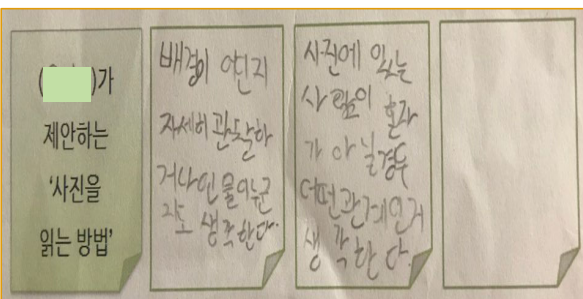 ( )가
제안하는
'사진을
읽는 방법'
배경이 어딘지
자세히 관찰하
거나 인물이 누군
지도 생각한다.
사진에 있는
사람이 혼자
가 아닐 경우
어떤 관계인지
생각한다.